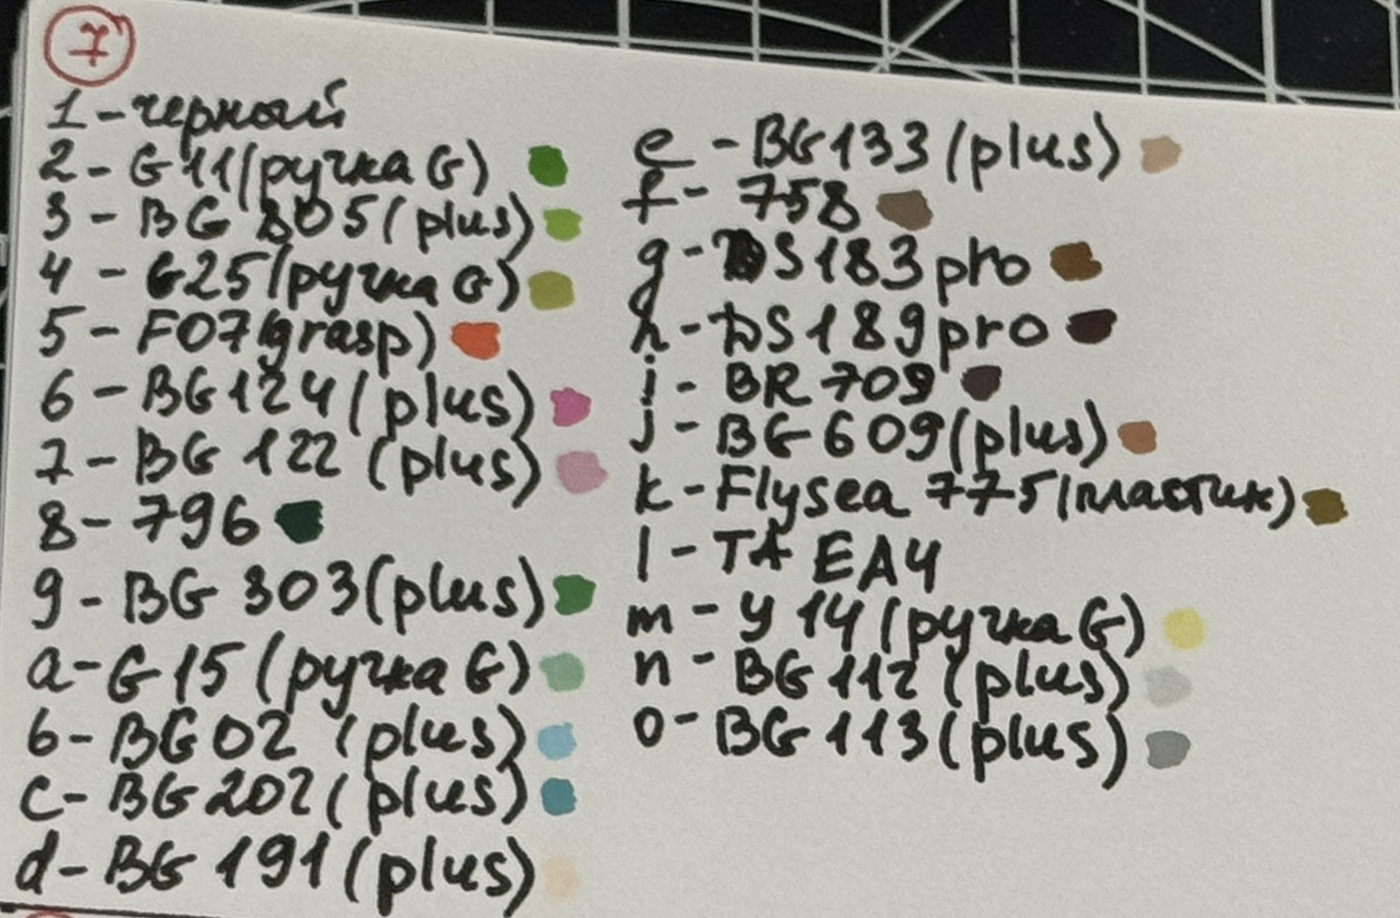 7
1 - черный
2 - G11 (ручка G)
3 - BG 805 (plus)
4 - G25 (ручка G)
5 - F07 (grasp)
6 - BG 124 (plus)
7 - BG 122 (plus)
8 - 796
9 - BG 303 (plus)
a - G15 (ручка G)
b - BG 02 (plus)
c - BG 202 (plus)
d - BG 191 (plus)
e - BG 133 (plus)
f - 758
g - DS 183 pro
h - DS 189 pro
i - BR 709
j - BG 609 (plus)
k - Flysea 775 (пластик)
l - TA EA4
m - Y 14 (ручка G)
n - BG 112 (plus)
o - BG 113 (plus)